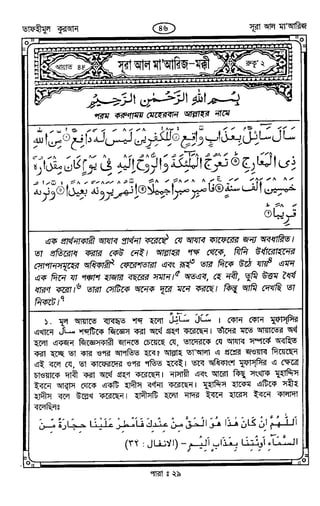 তাফহীমুল কুরআন
৪৬
সূরা আল মা'আরিজ
আয়াত ৪৪
সূরা আল মা'আরিজ-মক্কী
রুকূ' ২
بِسْمِ اللهِ الرَّحْمٰنِ الرَّحِيْمِ
পরম করুণাময় মেহেরবান আল্লাহর নামে
سَاَلَ سَآئِلٌۢ بِعَذَابٍ وَّاقِعٍ ۝ لِّلْكٰفِرِيْنَ لَيْسَ لَهٗ دَافِعٌ ۝ مِّنَ اللهِ
ذِى الْمَعَارِجِ ۝ تَعْرُجُ الْمَلٰٓئِكَةُ وَالرُّوْحُ اِلَيْهِ فِىْ يَوْمٍ كَانَ مِقْدَارُهٗ
خَمْسِيْنَ اَلْفَ سَنَةٍ ۝ فَاصْبِرْ صَبْرًا جَمِيْلًا ۝ اِنَّهُمْ يَرَوْنَهٗ بَعِيْدًا ۝ وَّنَرٰىهُ
قَرِيْبًا ۝
এক প্রার্থনাকারী আযাব প্রার্থনা করেছে১ যে আযাব কাফেরের জন্য অবধারিত।
তা প্রতিরোধ করার কেউ নেই। আল্লাহর পক্ষ থেকে, যিনি উর্ধারোহনের
সোপানসমূহের অধিকারী২ ফেরেশতারা এবং রূহ৩ তার দিকে উঠে যায়৪ এমন
এক দিনে যা পঞ্চাশ হাজার বছরের সমান।৫ অতএব, হে নবী, তুমি উত্তম ধৈর্য
ধারণ করো।৬ তারা সেটিকে অনেক দূরে মনে করছে। কিন্তু আমি দেখছি তা
নিকটে।৭
১. মূল আয়াতে ব্যবহৃত শব্দ হলো سَاَلَ سَآئِلٌ । কোন কোন মুফাস্সির
এখানে سَاَلَ শব্দটিকে জিজ্ঞেস করা অর্থে গ্রহণ করেছেন। তাঁদের মতে আয়াতের অর্থ
হলো একজন জিজ্ঞেসকারী জানতে চেয়েছে যে, তাদেরকে যে আযাব সম্পর্কে অবহিত
করা হচ্ছে তা কার ওপর আপতিত হবে? আল্লাহ তা'আলা এ প্রশ্নের জওয়াব দিয়েছেন
এই বলে যে, তা কাফেরদের ওপর পতিত হবেই। তবে অধিকাংশ মুফাস্সির এ ক্ষেত্রে
চাওয়াকে দাবী করা অর্থে গ্রহণ করেছেন। নাসায়ী এবং আরো কিছু সংখ্যক মুহাদ্দিস
ইবনে আব্বাস থেকে একটি হাদীস বর্ণনা করেছেন। মুহাদ্দিস হাকেম এটিকে সহীহ
হাদীস বলে উল্লেখ করেছেন। হাদীসটি হলো নাদর ইবনে হারেস ইবনে কালাদা
বলেছিলঃ
اَللّٰهُمَّ اِنْ كَانَ هٰذَا هُوَ الْحَقَّ مِنْ عِنْدِكَ فَاَمْطِرْ عَلَيْنَا حِجَارَةً مِّنَ
السَّمَآءِ اَوِ ائْتِنَا بِعَذَابٍ اَلِيْمٍ – (الانفال : ٣٢)
পারা : ২৯